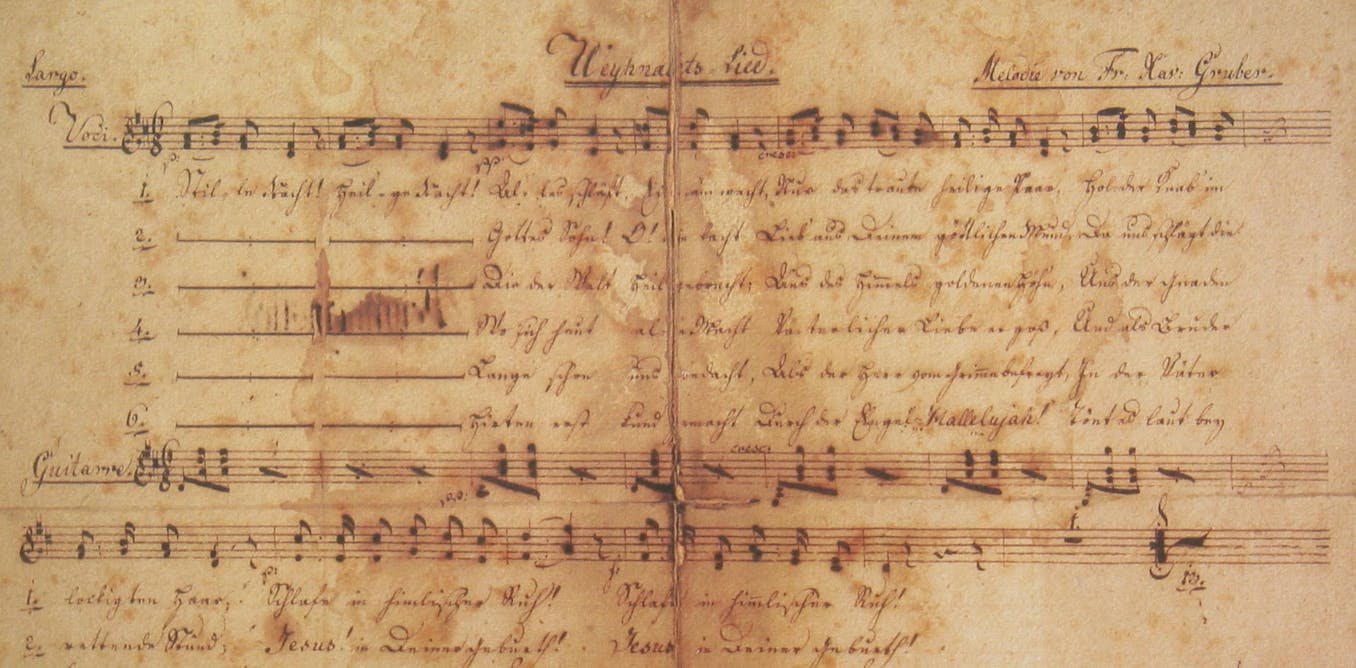 Weyhnachts-Lied.
Largo.
Melodie von Fr: Xav: Gruber.
Voci.
p:
pp:
cresc:
1. Stil-le Nacht! Heil-ge Nacht! Al-les schläft, Ein sam wacht, Nur das traute heilige Paar, Holder Knab im
2. Gottes Sohn! O! wie lacht Lieb aus Deinem göttlichen Mund, Da uns schlägt die
3. Die der Welt Heil gebracht; Aus des Himmels goldenen Höhn, Aus der Gnaden
4. Wo sich heut alle Macht Väterlicher Liebe ergoß, Und als Bruder
5. Lange schon uns bedacht, Als der Herr vom Grimme befreyt, In der Väter
6. Hirten erst kund gemacht Durch der Engel Hallelujah! Tönt es laut bey
Guitarre.
pp:
cresc:
1.
p:
1. lockigten Haar; Schlafe in himlischer Ruh! Schlafe in himlischer Ruh!
2. rettende Stund; Jesus! in Deiner Geburth! Jesus in Deiner Geburth!